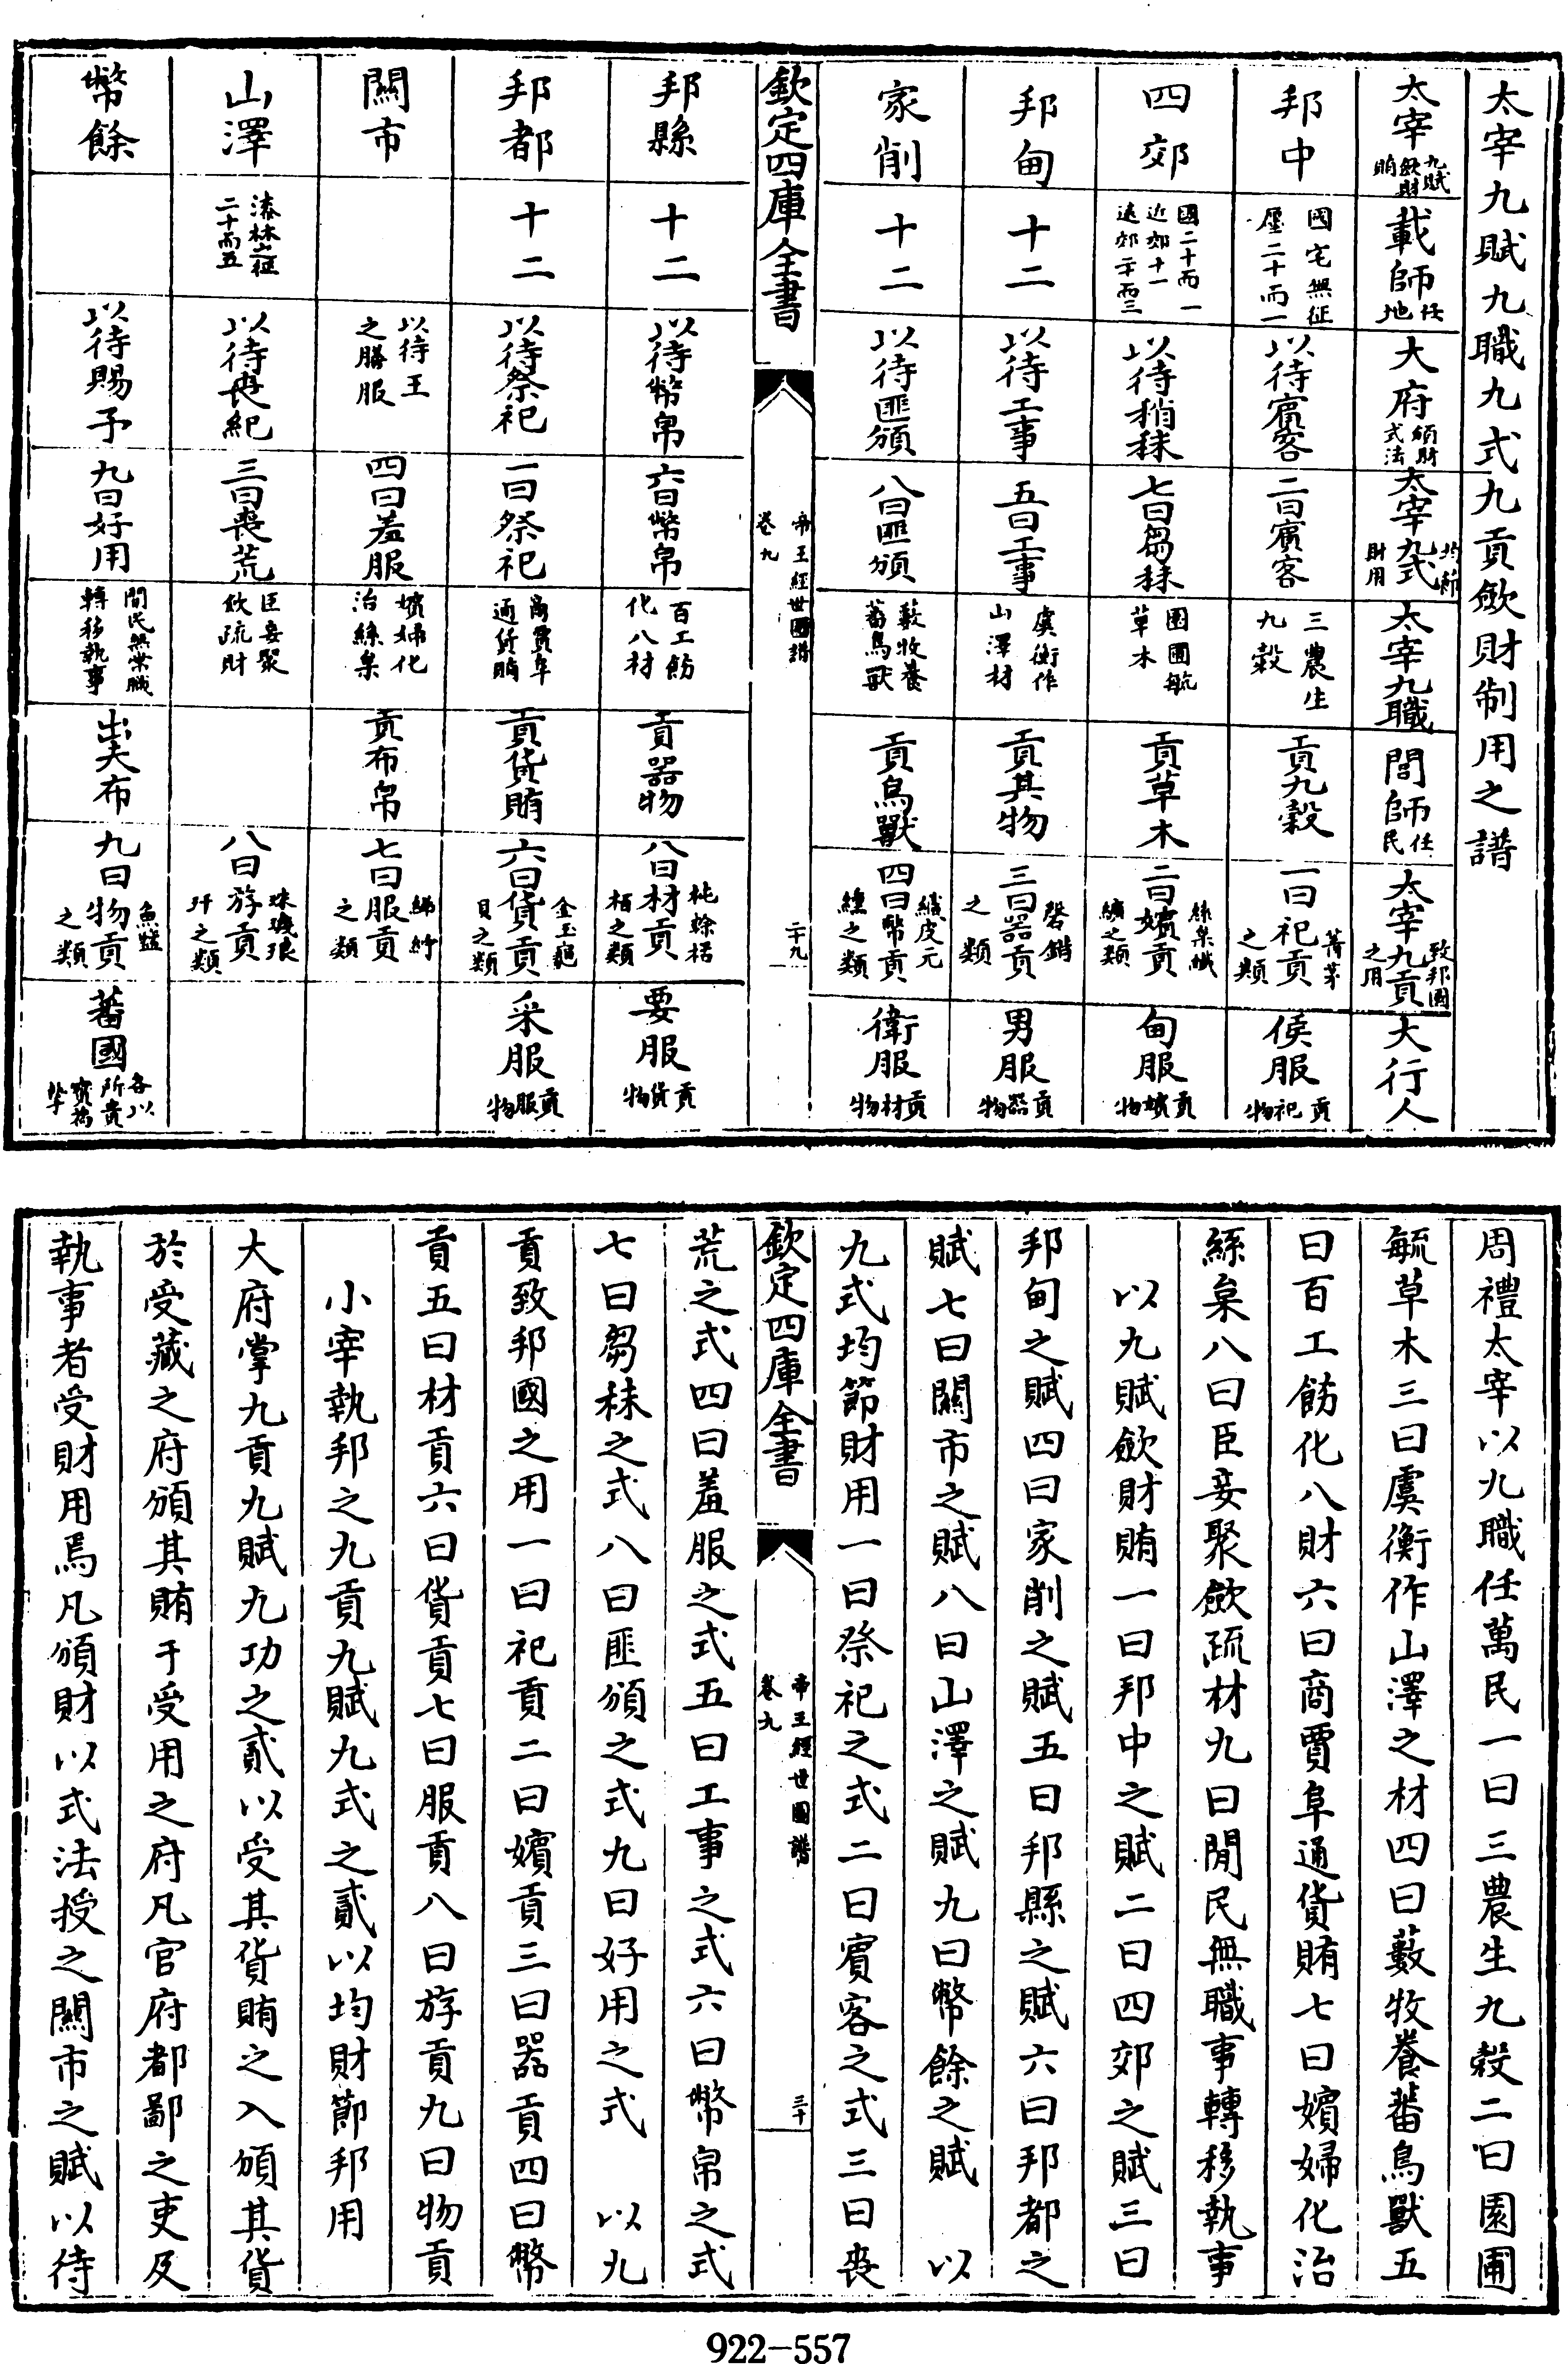 太宰九賦九職九式九貢斂財制用之譜
太宰九賦斂財賄 載師任地 大府頒財式法 太宰九式均節財用 太宰九職 閭師任民 太宰九貢致邦國之用 大行人
邦中 國宅無征廛二十而一 以待賓客 二曰賓客 三農生九穀 貢九穀 一曰祀貢菁茅之類 侯服貢祀物
四郊 國二十而一近郊十一遠郊二十而三 以待稍秣 七曰芻秣 園圃毓草木 貢草木 二曰嬪貢絲枲纎纊之類 甸服貢嬪物
邦甸 十二 以待工事 五曰工事 虞衡作山澤材 貢其物 三曰器貢磬錯之類 男服貢器物
家削 十二 以待匪頒 八曰匪頒 藪牧養蕃鳥獸 貢鳥獸 四曰幣貢織皮元纁之類 衛服貢材物
欽定四庫全書 帝王經世圖譜 卷九 二十九
邦縣 十二 以待幣帛 六曰幣帛 百工飭化八材 貢器物 八曰材貢杶榦栝栢之類 要服貢貨物
邦都 十二 以待祭祀 一曰祭祀 商賈阜通貨賄 貢貨賄 六曰貨貢金玉龜貝之類 采服貢服物
關市 以待王之膳服 四曰羞服 嬪婦化治絲枲 貢布帛 七曰服貢絺紵之類
山澤 漆林之征二十而五 以待喪紀 三曰喪荒 臣妾聚斂疏財 八曰斿貢珠璣琅玕之類
幣餘 以待賜予 九曰好用 間民無常職轉移執事 出夫布 九曰物貢魚鹽之類 蕃國各以所貴寳為摯
周禮太宰以九職任萬民一曰三農生九穀二曰園圃
毓草木三曰虞衡作山澤之材四曰藪牧養蕃鳥獸五
曰百工飭化八財六曰商賈阜通貨賄七曰嬪婦化治
絲枲八曰臣妾聚斂疏材九曰閒民無職事轉移執事
以九賦斂財賄一曰邦中之賦二曰四郊之賦三曰
邦甸之賦四曰家削之賦五曰邦縣之賦六曰邦都之
賦七曰關市之賦八曰山澤之賦九曰幣餘之賦 以
九式均節財用一曰祭祀之式二曰賓客之式三曰喪
欽定四庫全書 帝王經世圖譜 卷九 三十
荒之式四曰羞服之式五曰工事之式六曰幣帛之式
七曰芻秣之式八曰匪頒之式九曰好用之式 以九
貢致邦國之用一曰祀貢二曰嬪貢三曰器貢四曰幣
貢五曰材貢六曰貨貢七曰服貢八曰斿貢九曰物貢
小宰執邦之九貢九賦九式之貳以均財節邦用
大府掌九貢九賦九功之貳以受其貨賄之入頒其貨
於受藏之府頒其賄于受用之府凡官府都鄙之吏及
執事者受財用焉凡頒財以式法授之關市之賦以待
922-557